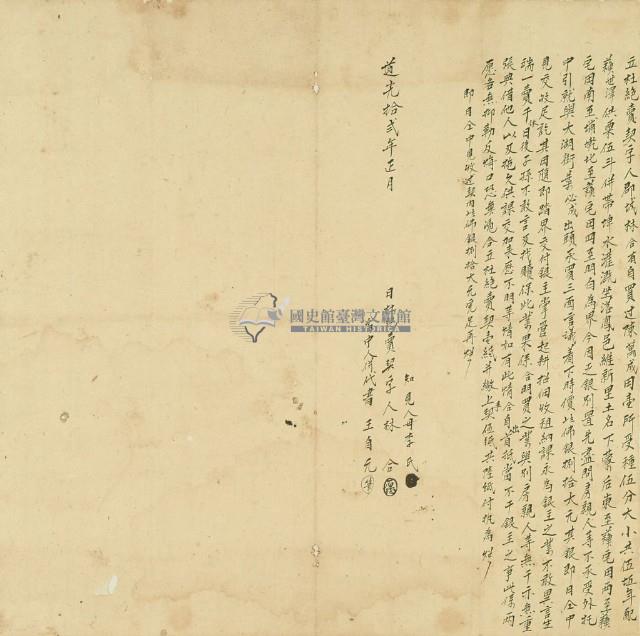 立杜絕賣契字人郡城林合有自買過陳萬成田壹所受種伍分大小共伍坵年配
蘇世澤供粟伍斗併帶埤水灌溉坐落鳳邑維新里土名下藔后東至蘇宅田西至蘇
宅田南至塭墘北至蘇宅田四至明白為界今因乏銀別置先盡問房親人等不承受外托
中引就與大湖街葉必成出頭承買三面言議著下時價六八佛銀捌拾大元其銀即日仝中
見交收足訖其田隨即踏界交付銀主掌管起耕招佃收租納課永為銀主之業不敢異言生
端一賣千休日後子孫不敢言及找贖保此業果係合明買之業與別房親人等無干亦無重
張典借他人以及拖欠供課交加來歷不明等情如有此情合自出首抵當不干銀主之事此係兩
愿各無抑勒反悔口恐無憑合立杜絕賣契壹紙并繳上契伍紙共陸紙付執為炤
即日仝中見收過契內六八佛銀捌拾大元完足再炤
道光拾弍年正月
日立杜絕賣契字人林 合
知見人母李氏
為中人併代書 王自元
國史館臺灣文獻館
TAIWAN HISTORICA